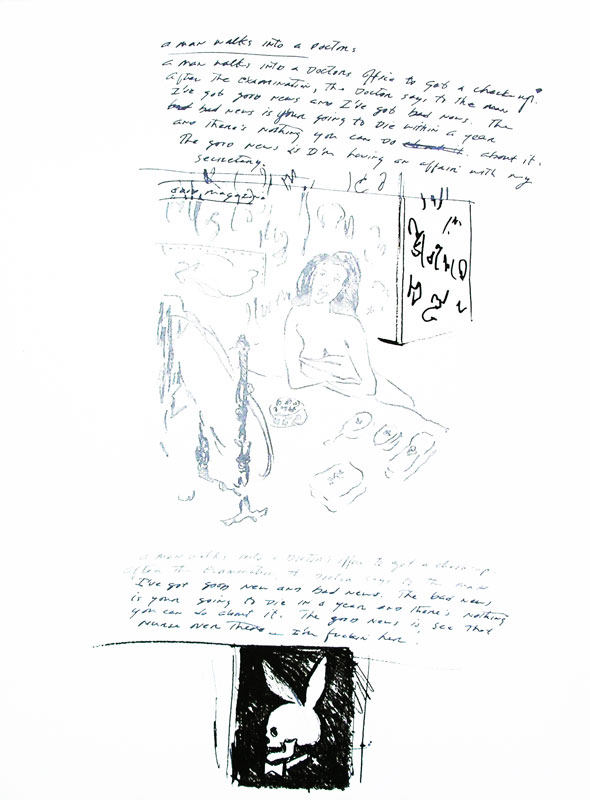 a man walks into a Doctors
a man walks into a Doctors office to get a check-up.
After the examination, the Doctor says to the man
I've got good news and I've got bad news. The
bad bad news is your going to Die within a year
and there's nothing you can do about it. about it.
The good news is I'm having an affair with my
secretary.
a man walks into a Doctors office to get a check-up
after the examination, the Doctor says to the man
I've got good new and bad news. The bad news
is your going to Die in a year and there's nothing
you can do about it. The good news is, see that
nurse over there — I'm fuckin her.